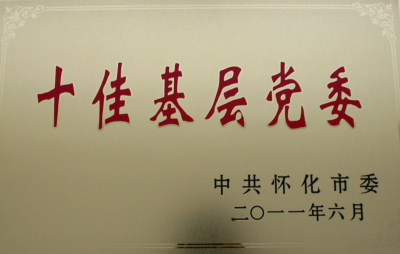 十佳基层党委
中共怀化市委
二〇一一年六月